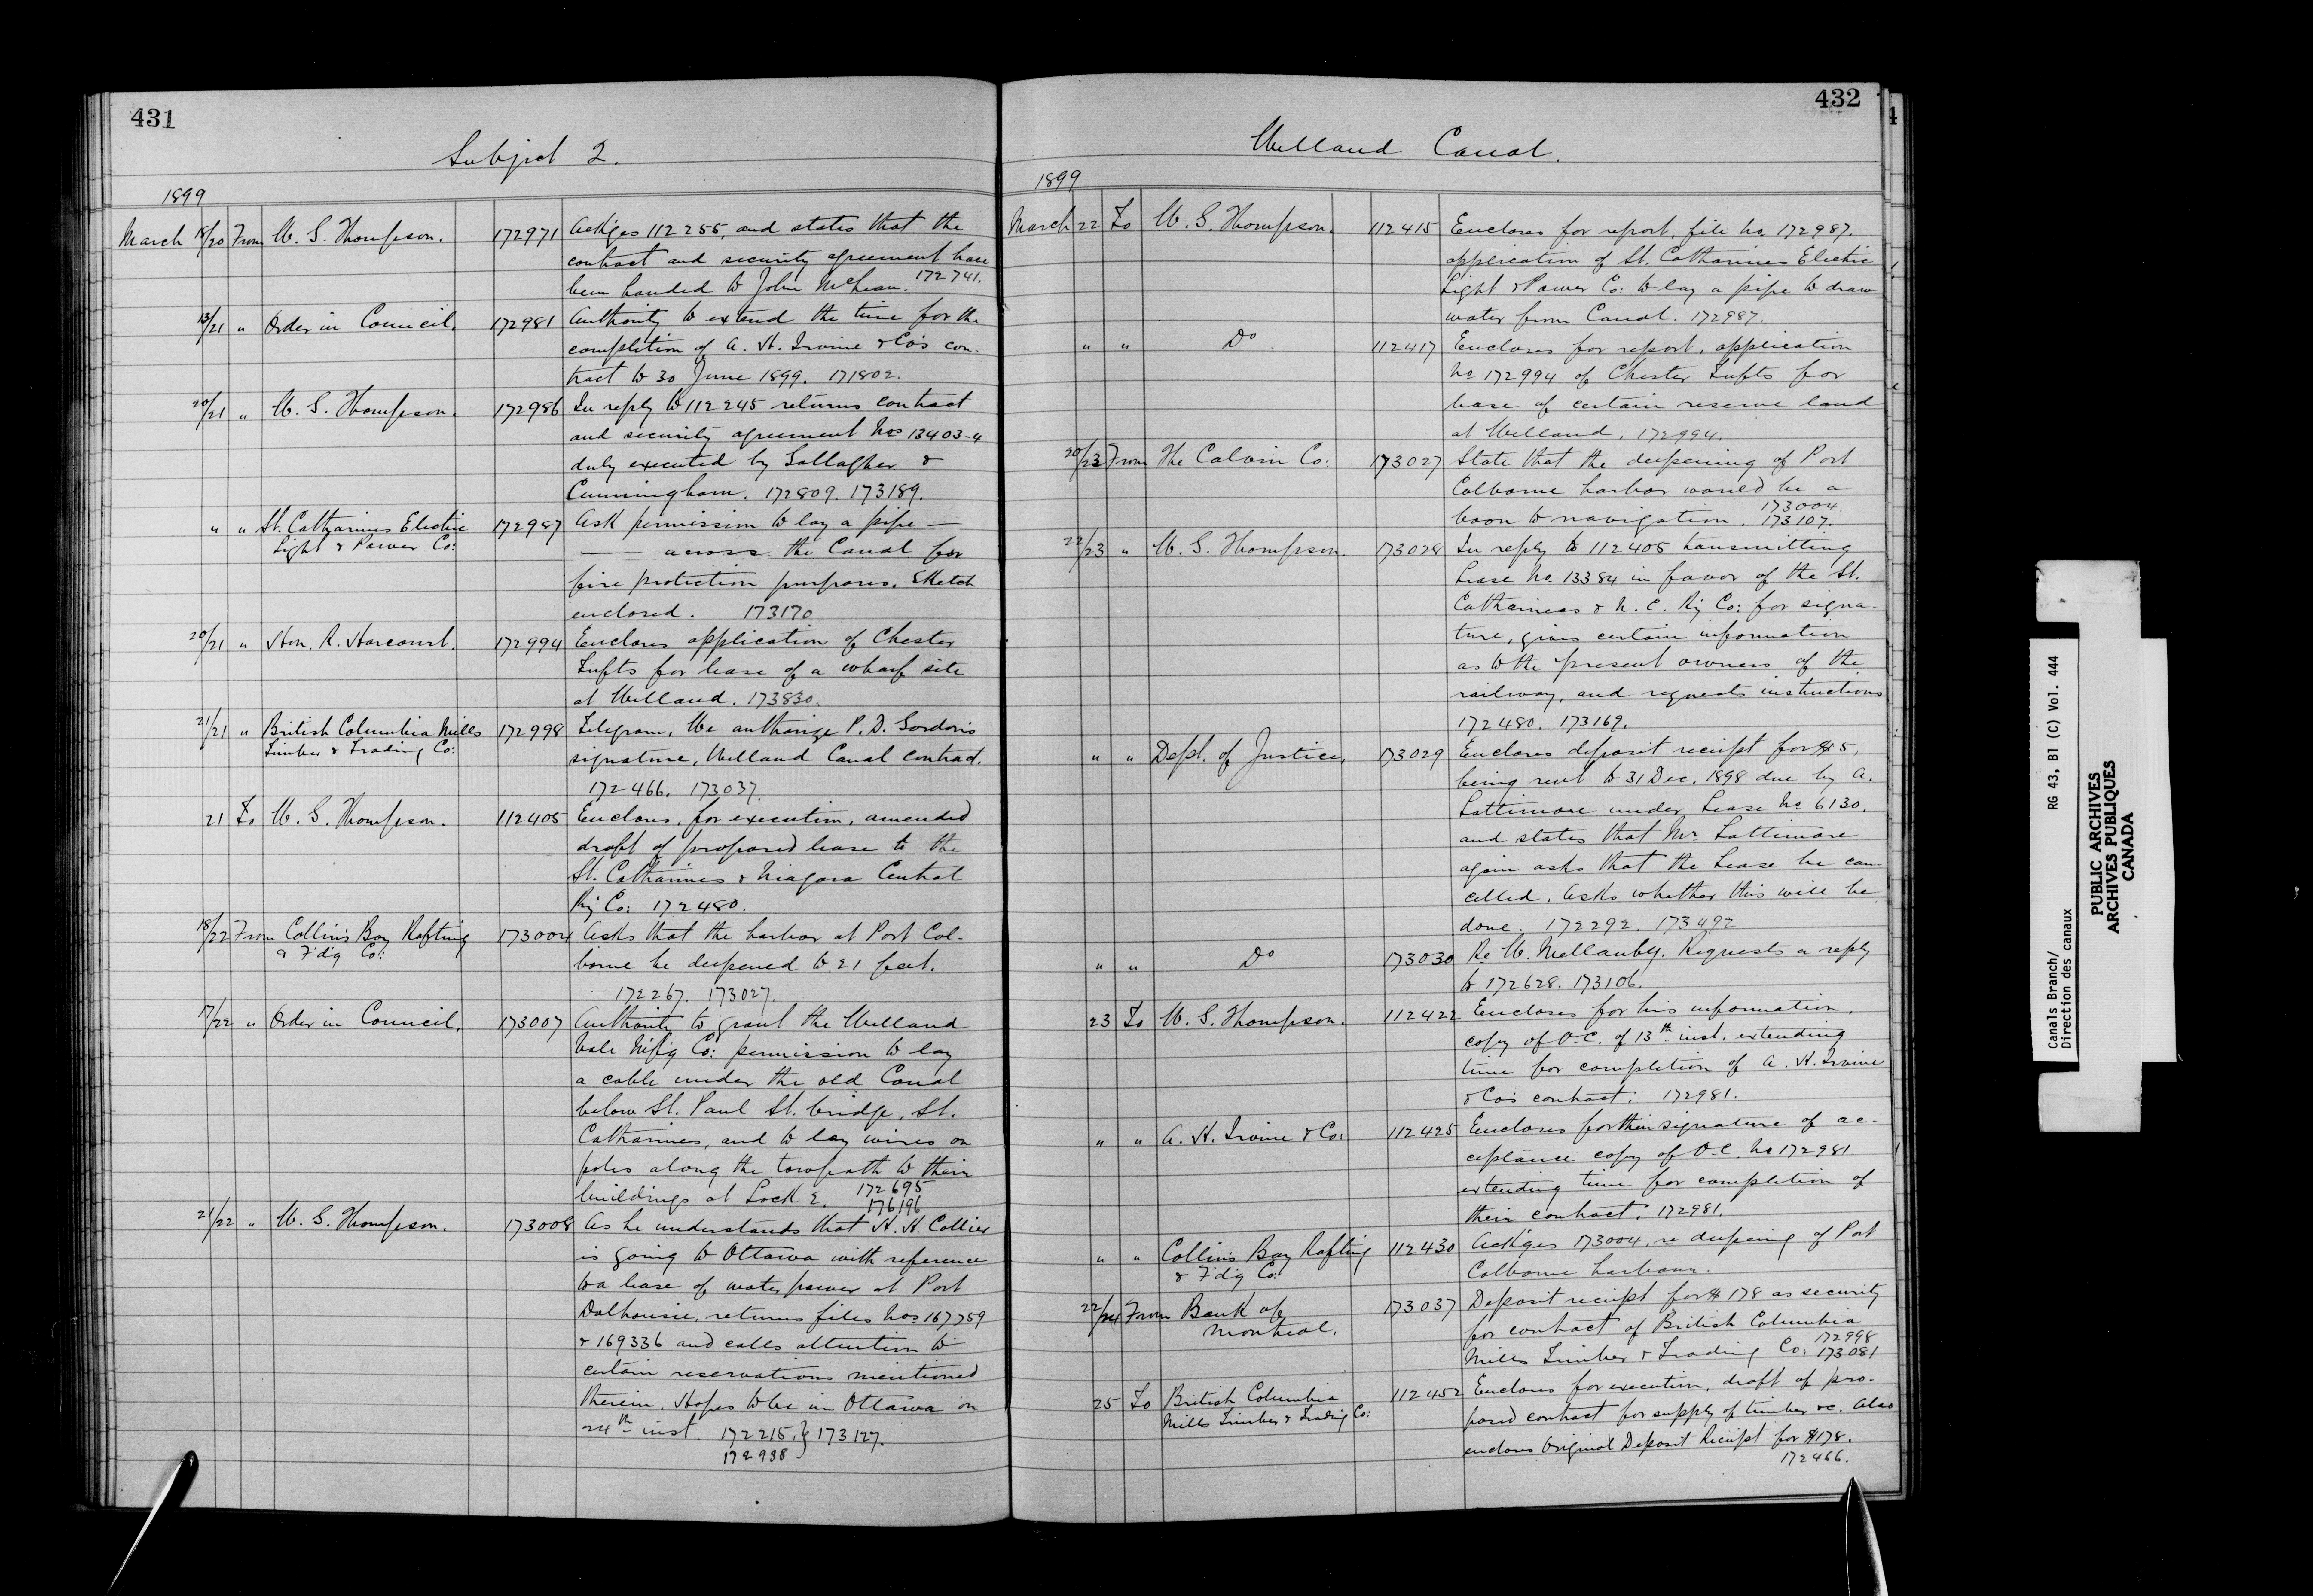 431
Subject 2.
1899
March 18/20 From W. G. Thompson. 172971 Ackges 112255, and states that the
contract and security agreement have
been handed to John McLean. 172741.
13/21 " Order in Council. 172981 Authority to extend the time for the
completion of A. H. Irvine & Co's con-
tract to 30 June 1899. 171802.
20/21 " W. G. Thompson. 172986 In reply to 112245 returns contract
and security agreement Nos 13403-4
duly executed by Gallagher &
Cunningham. 172809. 173189.
" " St. Catharines Electric 172987 Ask permission to lay a pipe —
Light & Power Co:
— across the Canal for
fire protection purposes. Sketch
enclosed. 173170
20/21 " Hon. R. Harcourt. 172994 Encloses application of Chester
Tufts for lease of a wharf site
at Welland. 173830.
21/21 " British Columbia Mills 172998 Telegram, We authorize P. D. Gordon's
Timber & Trading Co:
signature, Welland Canal contract.
172466. 173037.
21 To W. G. Thompson. 112405 Encloses, for execution, amended
draft of proposed lease to the
St. Catharines & Niagara Central
Ry Co: 172480.
18/22 From Collins Bay Rafting 173004 Asks that the harbor at Port Col-
& F'd'g Co:
borne be deepened to 21 feet.
172267. 173027.
17/22 " Order in Council. 173007 Authority to grant the Welland
Vale M'f'g Co: permission to lay
a cable under the old Canal
below St. Paul St. bridge, St.
Catharines, and to lay wires on
poles along the towpath to their
buildings at Lock 2. 172695
176196
21/22 " W. G. Thompson. 173008 As he understands that H. H. Collier
is going to Ottawa with reference
to a lease of water power at Port
Dalhousie, returns files Nos 167759
& 169336 and calls attention to
certain reservations mentioned
therein. Hopes to be in Ottawa on
24th inst. 172215. } 173127.
172938
432
Welland Canal.
1899
March 22 To W. G. Thompson. 112415 Encloses for report, file No 172987.
application of St. Catharines Electric
Light & Power Co: to lay a pipe to draw
water from Canal. 172987.
" " Do 112417 Encloses for report, application
No 172994 of Chester Tufts for
lease of certain reserve land
at Welland. 172994.
20/23 From The Calvin Co: 173027 State that the deepening of Port
Colborne harbor would be a
boon to navigation. 173004.
173107.
22/23 " W. G. Thompson. 173028 In reply to 112405 transmitting
Lease No. 13384 in favor of the St.
Catharines & N. C. Ry Co: for signa-
ture, gives certain information
as to the present owners of the
railway, and requests instructions
172480. 173169.
" " Dept. of Justice, 173029 Encloses deposit receipt for $5,
being rent to 31 Dec. 1898 due by A.
Lattimore under Lease No 6130.
and states that Mr. Lattimore
again asks that the Lease be can-
celled. Asks whether this will be
done. 172292. 173492
" " Do 173030 Re W. Mellanby. Requests a reply
to 172628. 173106.
23 To W. G. Thompson. 112422 Encloses for his information,
copy of O-C. of 13th inst. extending
time for completion of A. H. Irvine
& Co's contract. 172981.
" " A. H. Irvine & Co: 112425 Encloses for their signature of ac-
ceptance copy of O-C. No 172981
extending time for completion of
their contract. 172981.
" " Collins Bay Rafting 112430 Ack'ges 173004, re deepening of Port
& F'd'g Co:
Colborne harbour.
22/24 From Bank of 173037 Deposit receipt for $178 as security
Montreal.
for contract of British Columbia
Mills Timber & Trading Co: 172998
173081
25 To British Columbia 112452 Encloses for execution, draft of pro-
Mills Timber & Trading Co:
posed contract for supply of timber &c. Also
encloses Original Deposit Receipt for $178.
172466.
Canals Branch/ RG 43, B1 (C) Vol. 444
Direction des canaux
PUBLIC ARCHIVES
ARCHIVES PUBLIQUES
CANADA